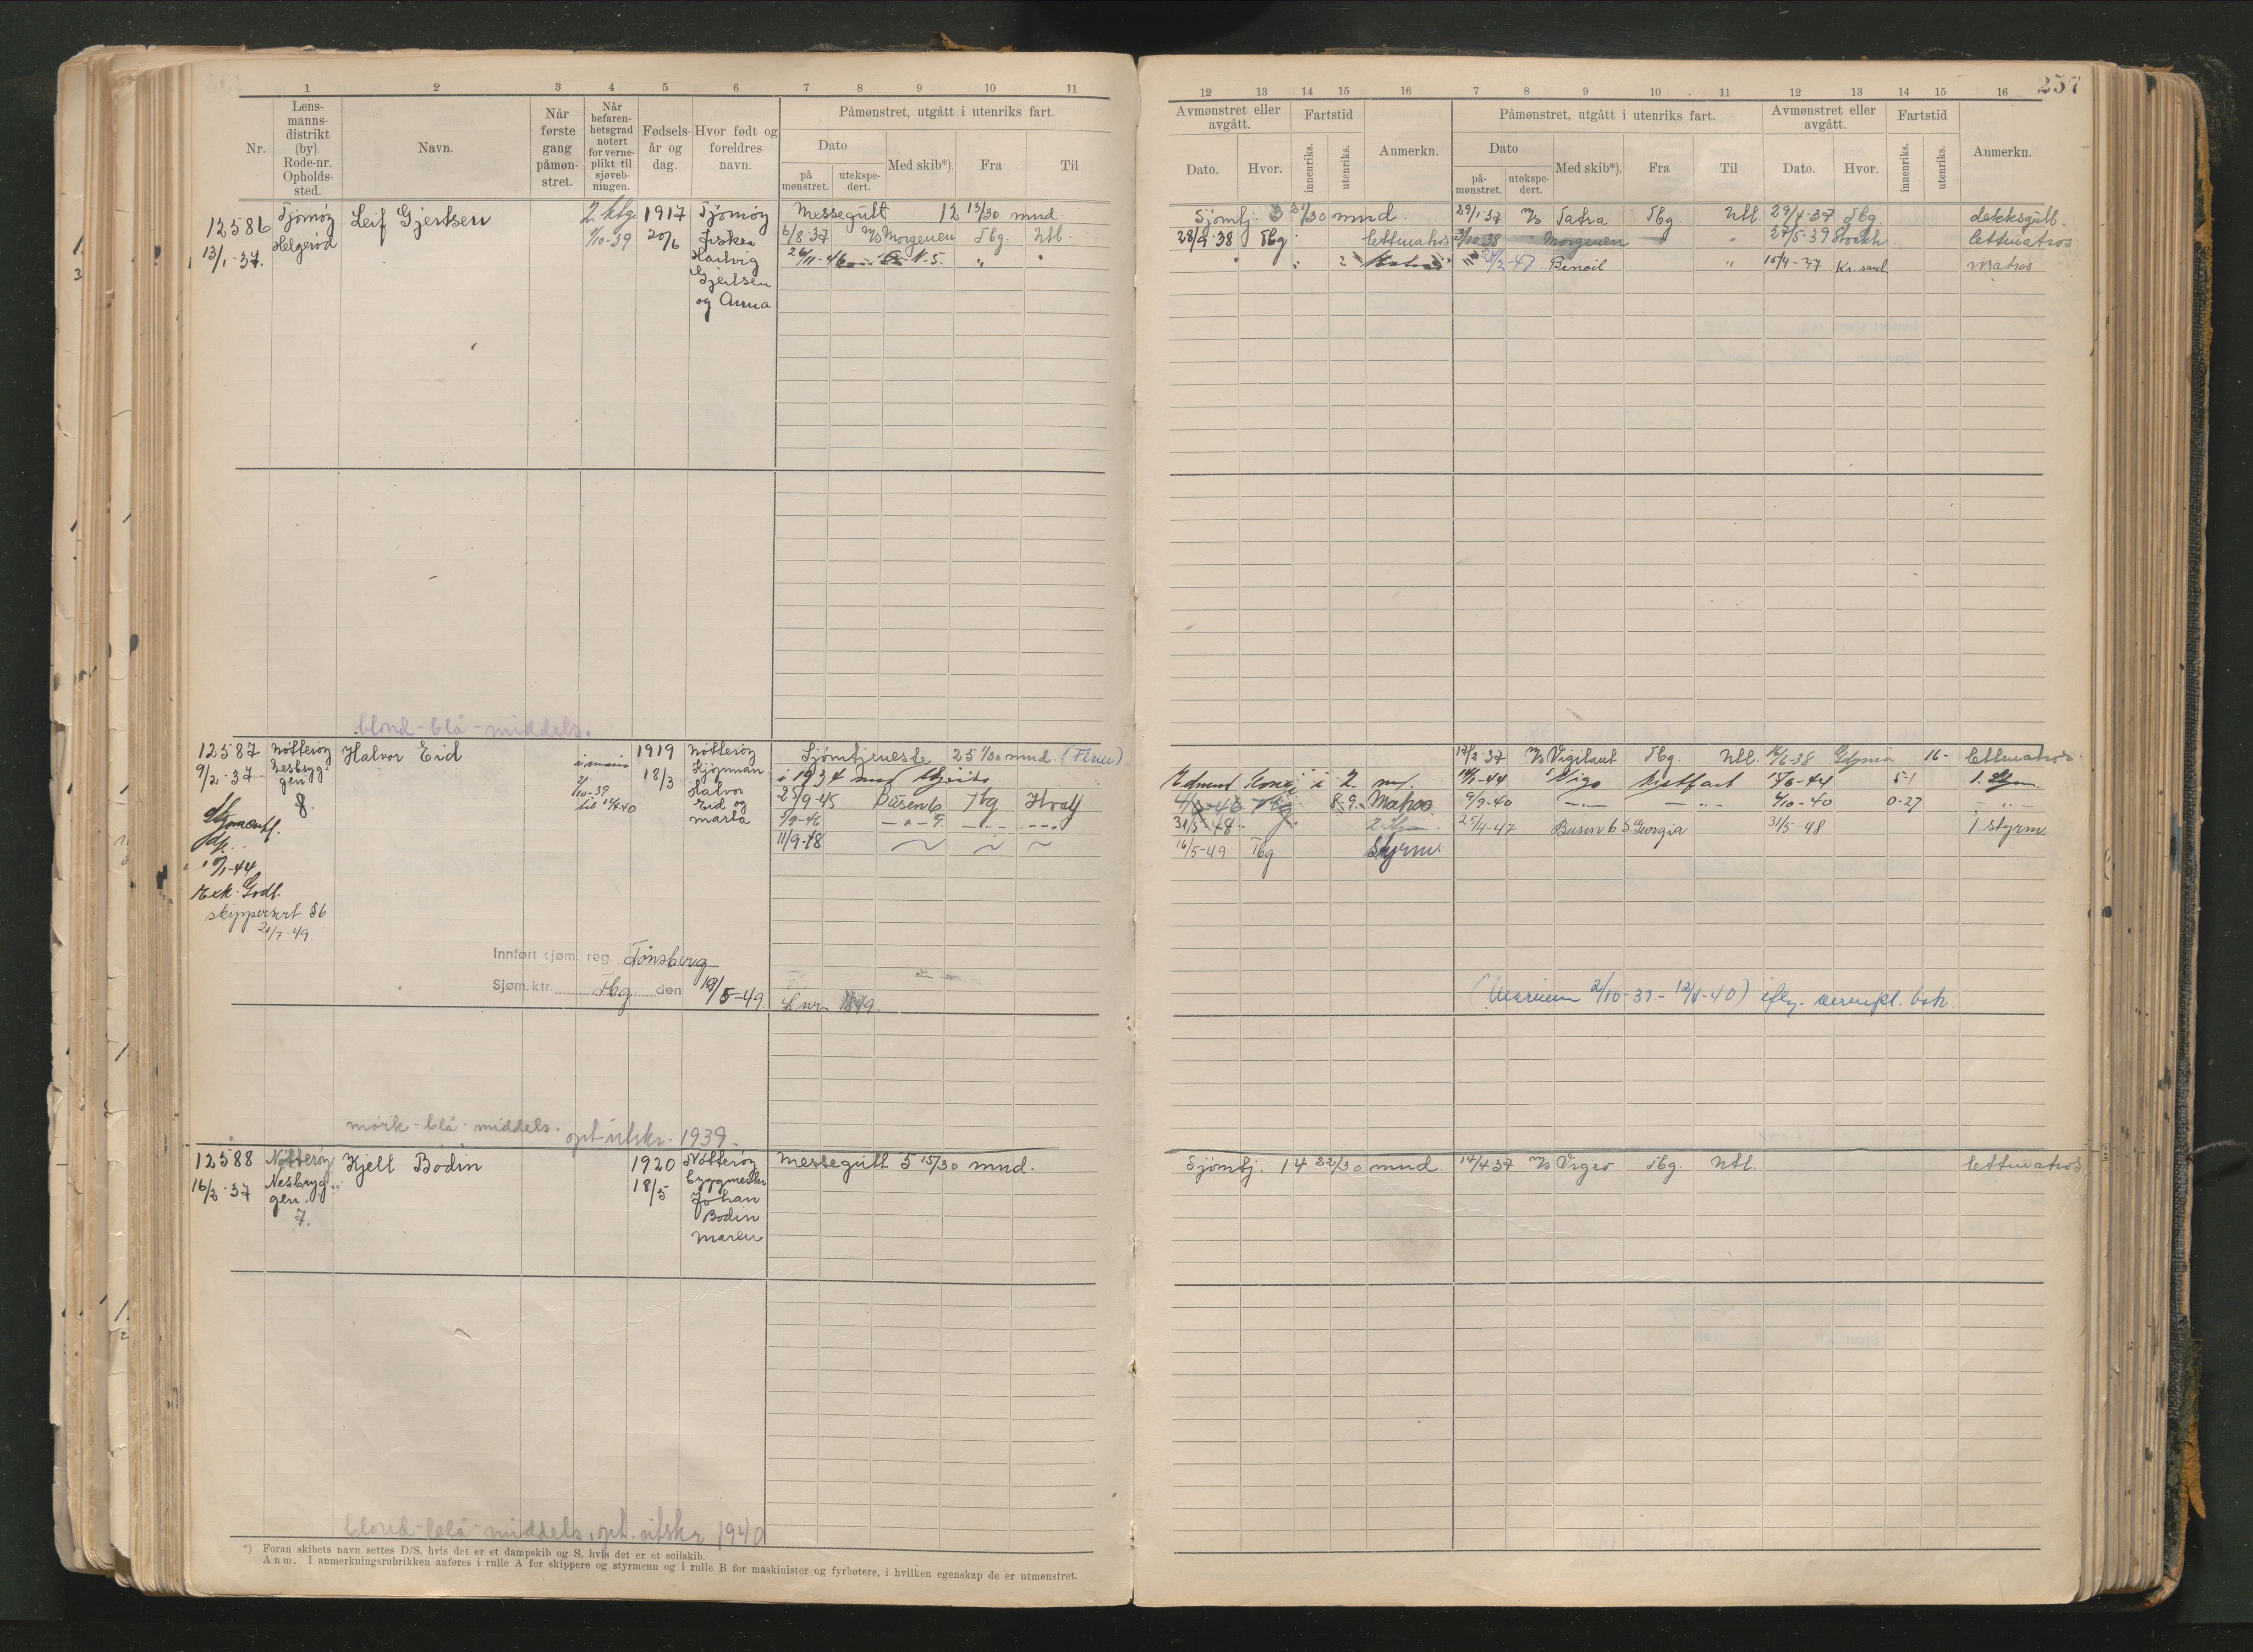 257
1 2 3 4 5 6 7 8 9 10 11
Nr.
Lens-
manns-
distrikt
(by).
Rode-nr.
Opholds-
sted.
Navn.
Når
første
gang
påmøn-
stret.
Når
befaren-
hetsgrad
notert
for verne-
plikt til
sjøveb-
ningen.
Fødsels-
år og
dag.
Hvor født og
foreldres
navn.
Påmønstret, utgått i utenriks fart.
Dato
på
mønstret.
utekspe-
dert.
Med skib*).
Fra
Til
12586
13/1-37.
Tjømøy
Helgerød
Leif Gjertsen
2 ktg
1/10-39
1917
20/6
Tjømøy
Fisker
Hartvig
Gjertsen
og Anna
Messegutt 12 13/30 mnd.
6/8-37 M/S Morgenen Tbg. Utl.
26/11-46 N.5. " "
blond-blå-middels.
12587
9/2-37
Nøtterøy
Nesbryg-
gen
8.
Halvor Eid
i marin
2/10-39
til 12/4-40
1919
18/3
Nøtterøy
Kjøpmann
Halvor
Eid og
Marta
Sjømtjeneste 25 1/30 mnd.
i 1934 med
25/9-45 Busen 6 Tbg Hvalf
5/9-46 -"- 9.
11/9-48
10/1-44
Eek. Godt.
skippersert 86
20/7-49.
Innført sjøm. reg. Tønsberg
Sjøm.ktr. Tbg. den 19/5-49.
L.nr. 1849.
mørk-blå-middels. opt utskr. 1939.
12588
16/2-37
Nøtterøy
Nesbryg-
gen.
7.
Kjell Bodin
1920
18/5
Nøtterøy
byggmester
Johan
Bodin
Maren
Messegutt 5 15/30 mnd.
blond-blå-middels. opt. utskr 1940
*) Foran skibets navn settes D/S, hvis det er et dampskib og S, hvis det er et seilskib.
Anm. I anmerkningsrubrikken anføres i rulle A for skippere og styrmenn og i rulle B for maskinister og fyrbøtere, i hvilken egenskap de er utmønstret.
12 13 14 15 16 7 8 9 10 11 12 13 14 15 16
Avmønstret eller
avgått.
Dato.
Hvor.
Fartstid
innenriks.
utenriks.
Anmerkn.
Påmønstret, utgått i utenriks fart.
Dato
på-
mønstret.
utekspe-
dert.
Med skib*).
Fra
Til
Avmønstret eller
avgått.
Dato.
Hvor.
Fartstid
innenriks.
utenriks.
Anmerkn.
Sjømtj. 3 21/30 mnd. 29/1-37 M/S Tatra Tbg. Utl. 29/4-37 Tbg. dekksgutt.
28/9-38 Tbg lettmatros 3/10-38 Morgenen 27/5-39 Stockh. lettmatros
24/2-47 Benoil " 15/4-47 Kr.sand matros
17/2-37 M/S Vigilant Tbg. Utl. 16/6-38 Gdynia 16- lettmatros.
2 14/1-44 Vigo Kystfart 15/6-44 5-1 1. Styrm.
4/6-46 Tbg 8-9 Matros 9/9-40 -"- -"- 6/10-40 0-27 -"-
31/5-48 2. Styrm. 25/4-47 Busen 6 S. Georgia 31/5-48 1. styrm
16/5-49 Tbg Styrm.
(Marinen 2/10-39-12/4-40) iflg. vernepl. bok
Sjømtj. 14 22/30 mnd. 14/4-37 M/S Vigeo Tbg. Utl. lettmatros